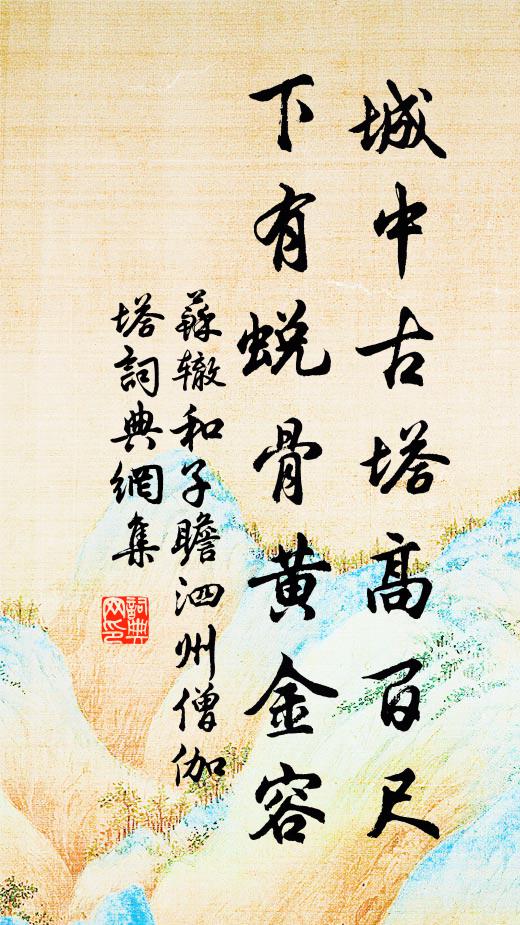 城中古塔高百尺
下有蜕骨黄金容
蘇辙和子瞻泗州僧伽
塔詞典網集
詞典
网印